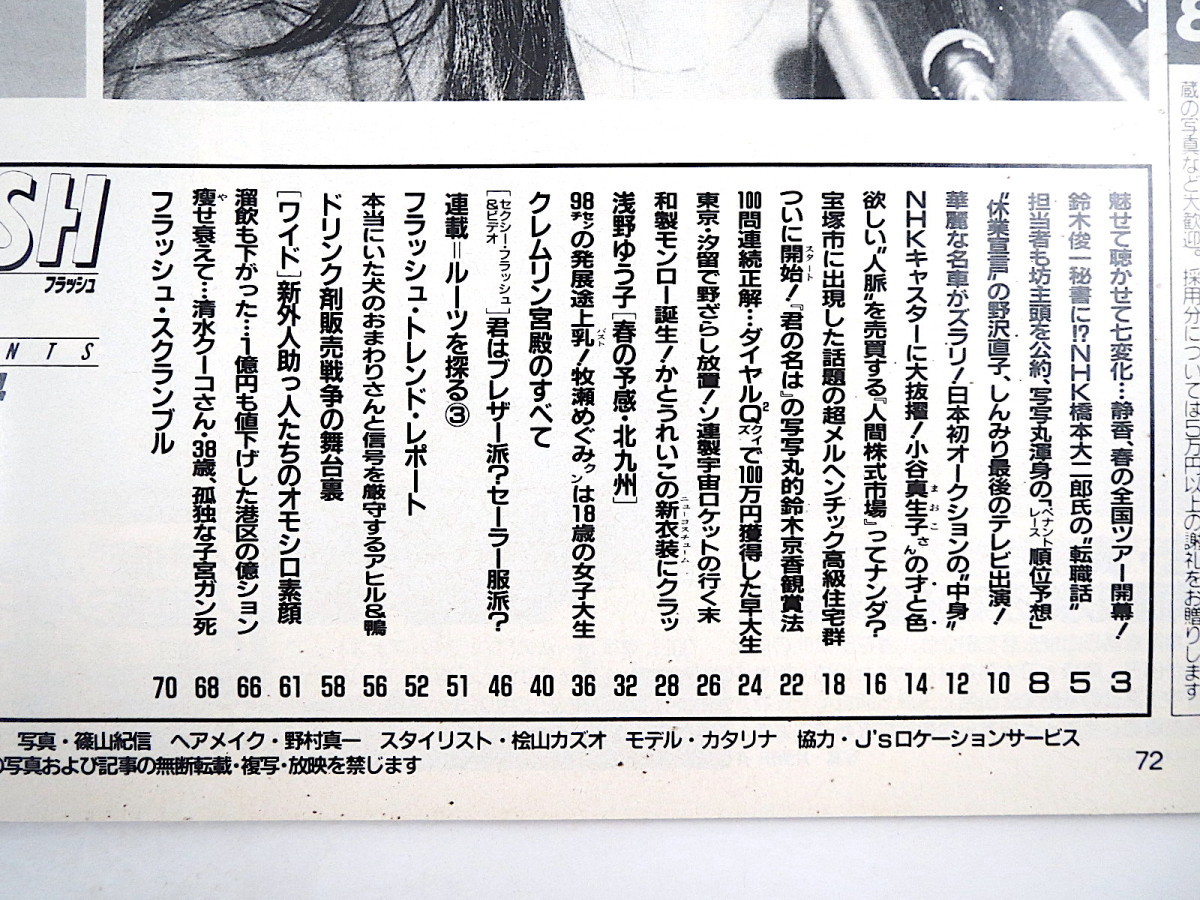 魅せて聴かせて七変化…静香、春の全国ツアー開幕！ 3
鈴木俊一秘書に!?NHK橋本大二郎氏の〝転職話〟 5
担当者も坊主頭を公約、写写丸渾身の「ペナントレース順位予想」 8
〝休業宣言〟の野沢直子、しんみり最後のテレビ出演！ 10
華麗な名車がズラリ！日本初オークションの〝中身〟 12
NHKキャスターに大抜擢！小谷真生子さんの才と色 14
まおこ
欲しい〝人脈〟を売買する『人間株式市場』ってナンダ？ 16
宝塚市に出現した話題の超メルヘンチック高級住宅群 18
ついに開始！『君の名は』の写写丸的鈴木京香観賞法 22
スタート
100問連続正解…ダイヤルQ²で100万円獲得した早大生 24
クイズ
東京・汐留で野ざらし放置！ソ連製宇宙ロケットの行く末 26
和製モンロー誕生！かとうれいこの新衣装にクラッ 28
ニューコスチューム
浅野ゆう子［春の予感・北九州］ 32
98センチの発展途上乳！牧瀬めぐみクンは18歳の女子大生 36
バスト
クレムリン宮殿のすべて 40
［セクシー・フラッシュ&ビデオ］君はブレザー派？セーラー服派？ 46
連載＝ルーツを探る③ 51
フラッシュ・トレンド・レポート 52
本当にいた犬のおまわりさんと信号を厳守するアヒル&鴨 56
ドリンク剤販売戦争の舞台裏 58
［ワイド］新外人助っ人たちのオモシロ素顔 61
溜飲も下がった…1億円も値下げした港区の億ション 66
痩せ衰えて…清水クーコさん・38歳、孤独な子宮ガン死 68
や
フラッシュ・スクランブル 70
SH
フラッシュ
NTS
写真・篠山紀信 ヘアメイク・野村真一 スタイリスト・桧山カズオ モデル・カタリナ 協力・J'sロケーションサービス
の写真および記事の無断転載・複写・放映を禁じます
72
蔵の写真など大歓迎。採用分については5万円以上の謝礼をお贈りします